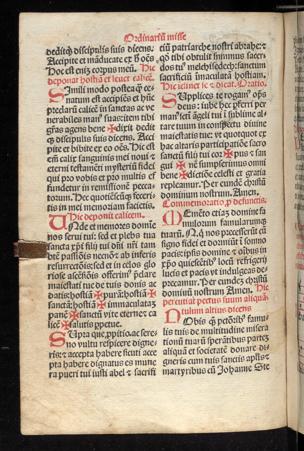 Ordinariũ misse
deditq̃ discipulis suis dicens.
Accipite et mãducate ex h̃ oẽs
Hoc est enĩ corpus meũ. Hic
deponat hostiã et leuet calicẽ.
Simili modo posteaq̃ ce-
natum est accipiẽs et hũc
preclarũ calicẽ in sanctas ac ve
nerabiles manꝰ suas:item tibi
gr̃as agens bene ✠ dixit dedit
q̃ discipulis suis dicens. Acci
pite et bibite ex eo oẽs. Hic est
em̃ calix sanguinis mei noui et
eterni testamẽti mysteriũ fidei
qui pro vobis et pro multis ef
fundetur in remissionẽ pecca-
torum. Hec quotiẽscũq̃ feceri-
tis in mei memoriam facietis.
Hic deponit calicem.
Unde et memores domi-
ne nos serui tui: sed et plebs tua
sancta xp̃i filij tui dñi nr̃i tam
btẽ passiõis necnõ ab inferis
resurrectiõis: sed et in celos glo
riose ascẽsiõis offerimꝰ preclare
maiestati tue de tuis donis ac
datis: hostiã ✠ purã: hostiã ✠
sanctã: hostiã ✠ immaculatã:
panẽ ✠ sanctũ vite eterne: ca
licẽ ✠ salutis ppetue.
Supra que ppitio: ac sere
no vultu respicere digne-
ris: et accepta habere sicuti acce
pta habere dignatus es mune
ra pueri tui iusti abel et sacrifi
ciũ patriarche nostri abrahe: et
qď tibi obtulit summus sacer-
dos tuꝰ melchisedech: sanctum
sacrificiũ immaculatã hostiam.
Hic ĩclinet se et dicat. Oratio.
Supplices te rogamꝰ om̃ps
deus: iube hec pferri per
manꝰ sctĩ ãgeli tui ĩ sublime al-
tare tuum in conspectu diuine
maiestatis tue: vt quotquot ex
hac altaris participatiõe sacro
sanctũ filij tui cor ✠ pus et san
✠ guinẽ sumpserimus omni
bene ✠ dictiõe celesti et gratia
repleamur. Per eundẽ christũ
dominum nostrum. Amen.
Commemoratio p defunctis.
Memẽto etiã domine fa
mulorum famularumq̃
tuarũ. N. qui nos precesserũt cũ
signo fidei et dormiũt ĩ somno
pacis: ipsis domine et oĩbus in
xp̃o quiescẽtibꝰ locũ refrigerij
lucis et pacis vt indulgeas de-
precamur. Per eundẽ christũ
dominum nostrum. Amen. Hic
percutiat pectus suum aliquã
tulum altius dicens.
Nobis q̃ peccatorib̃ famu-
lis tuis de multitudine misera
tionũ tuarũ sperãtibus partem
aliquã et societatẽ donare di-
gneris cum tuis sanctis apl̃is et
martyribus cũ Johanne Ste